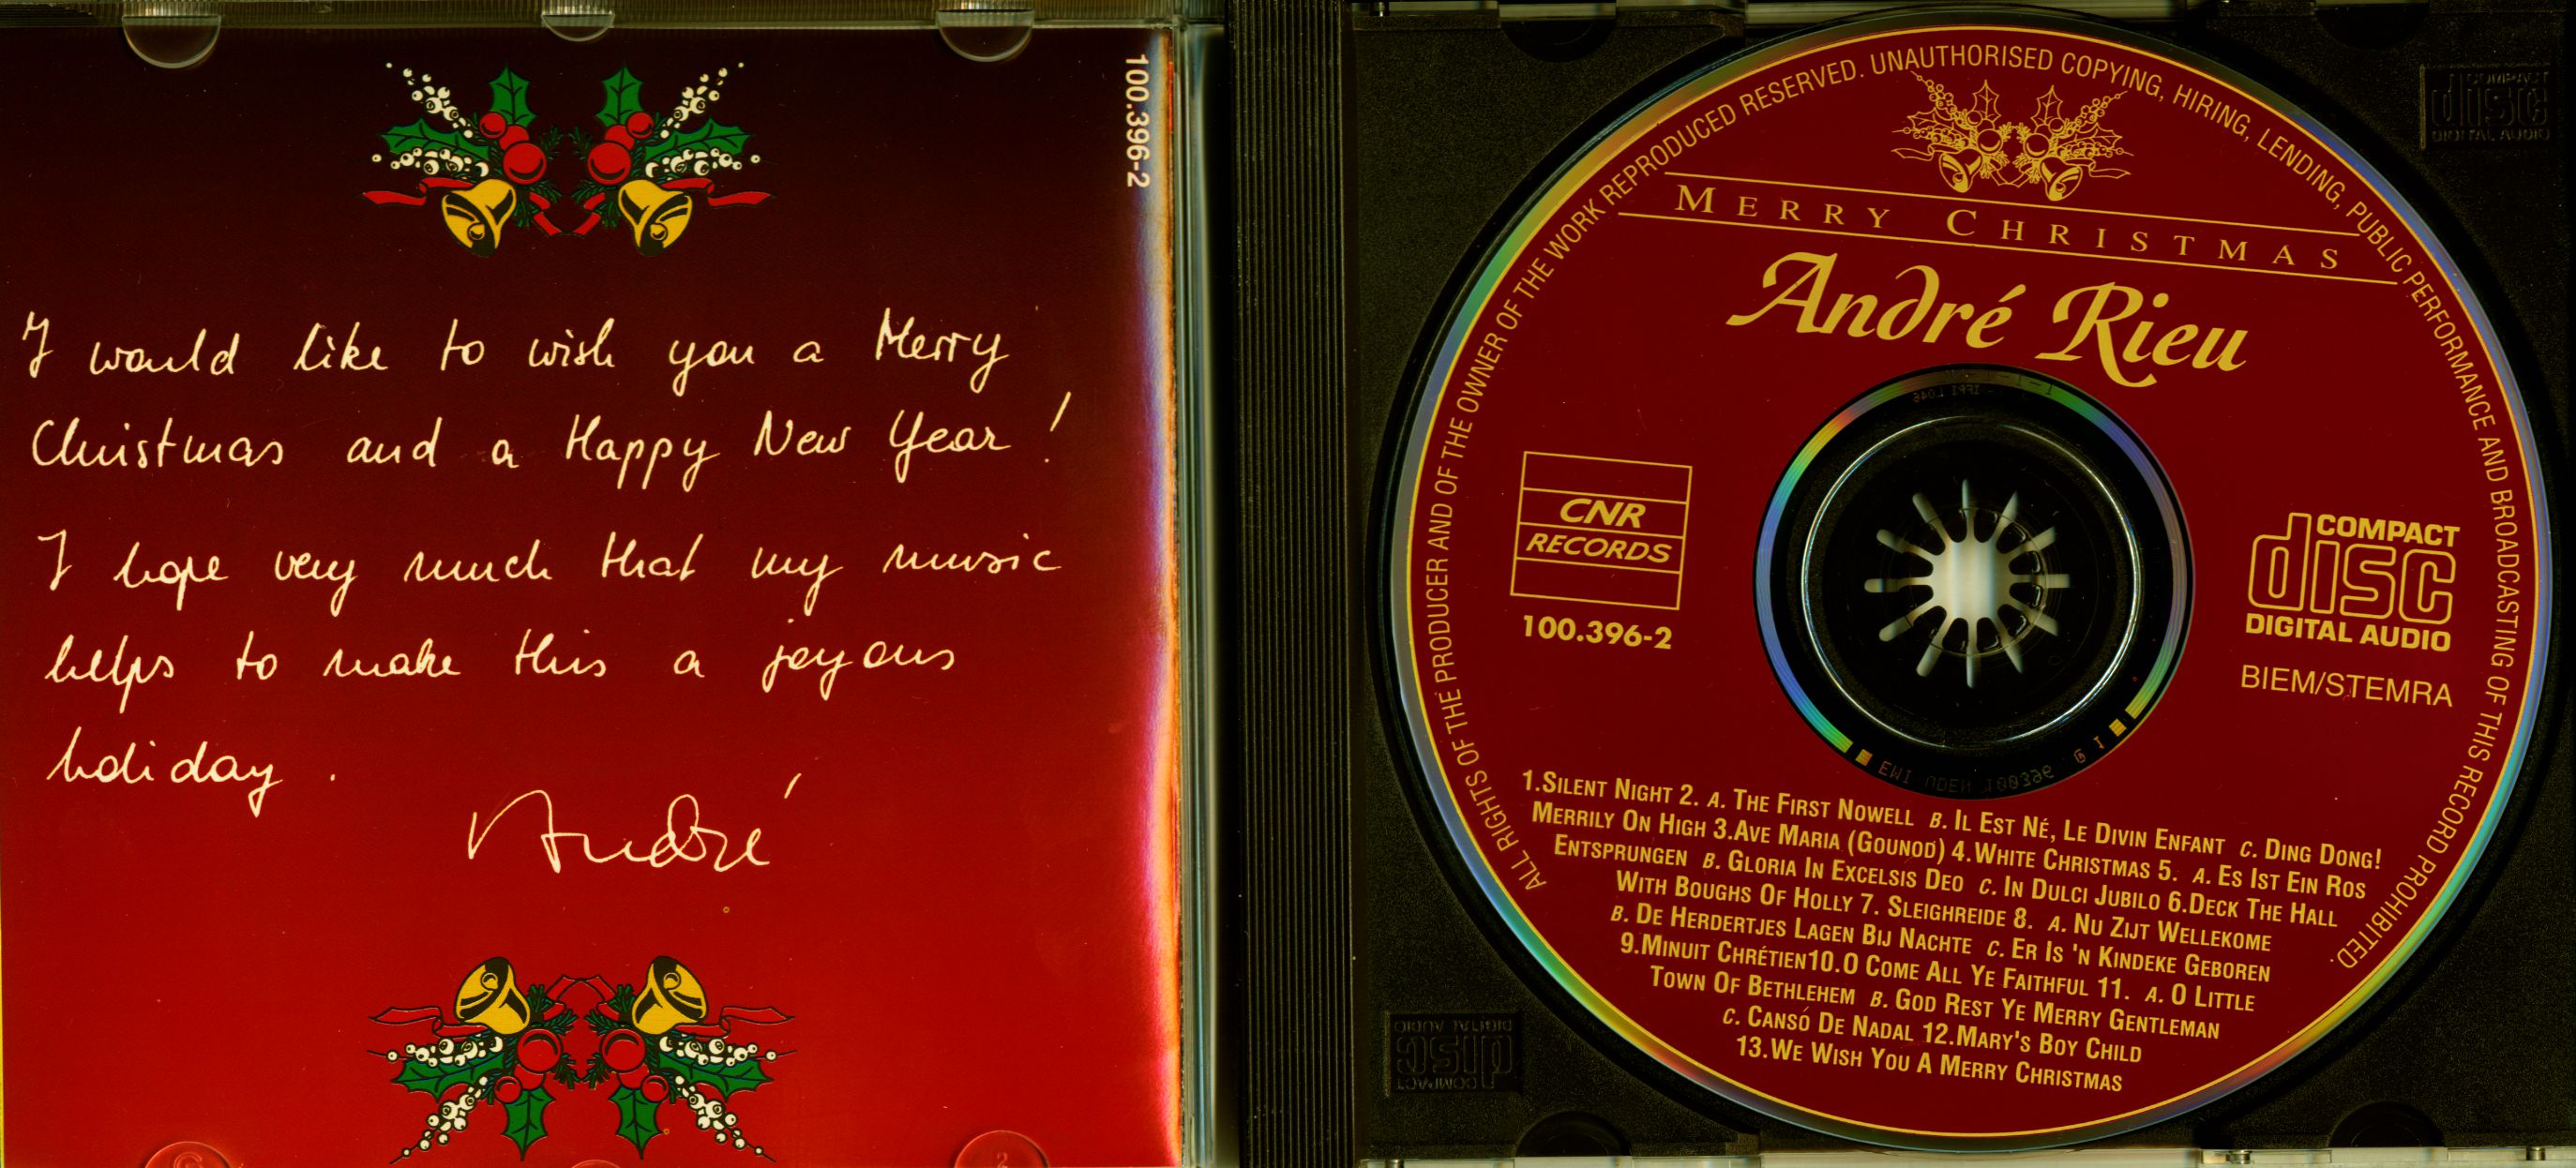 100.396-2
I would like to wish you a Merry
Christmas and a Happy New Year!
I hope very much that my music
helps to make this a joyous
holiday.
André
ALL RIGHTS OF THE PRODUCER AND OF THE OWNER OF THE WORK REPRODUCED RESERVED. UNAUTHORISED COPYING, HIRING, LENDING, PUBLIC PERFORMANCE AND BROADCASTING OF THIS RECORD PROHIBITED.
MERRY CHRISTMAS
André Rieu
CNR
RECORDS
100.396-2
COMPACT
disc
DIGITAL AUDIO
BIEM/STEMRA
1.SILENT NIGHT 2. A. THE FIRST NOWELL B. IL EST NÉ, LE DIVIN ENFANT C. DING DONG!
MERRILY ON HIGH 3.AVE MARIA (GOUNOD) 4.WHITE CHRISTMAS 5. A. ES IST EIN ROS
ENTSPRUNGEN B. GLORIA IN EXCELSIS DEO C. IN DULCI JUBILO 6.DECK THE HALL
WITH BOUGHS OF HOLLY 7. SLEIGHREIDE 8. A. NU ZIJT WELLEKOME
B. DE HERDERTJES LAGEN BIJ NACHTE C. ER IS 'N KINDEKE GEBOREN
9.MINUIT CHRÉTIEN10.O COME ALL YE FAITHFUL 11. A. O LITTLE
TOWN OF BETHLEHEM B. GOD REST YE MERRY GENTLEMAN
C. CANSÓ DE NADAL 12.MARY'S BOY CHILD
13.WE WISH YOU A MERRY CHRISTMAS
COMPACT
disc
DIGITAL AUDIO
COMPACT
disc
DIGITAL AUDIO